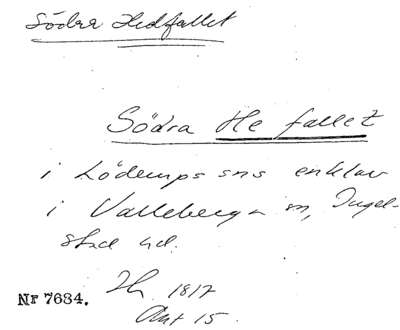 Södra Hedfallet
Södra He fallet
i Löderups sns enklav
i Valleberga sn, Ingel-
stad hd.
1817
Nr 7684.
Akt 15.